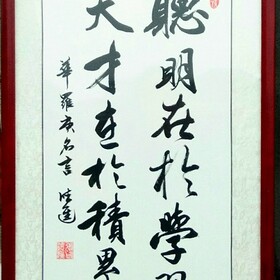 聰明在於學習
天才在於積累
華羅庚名言